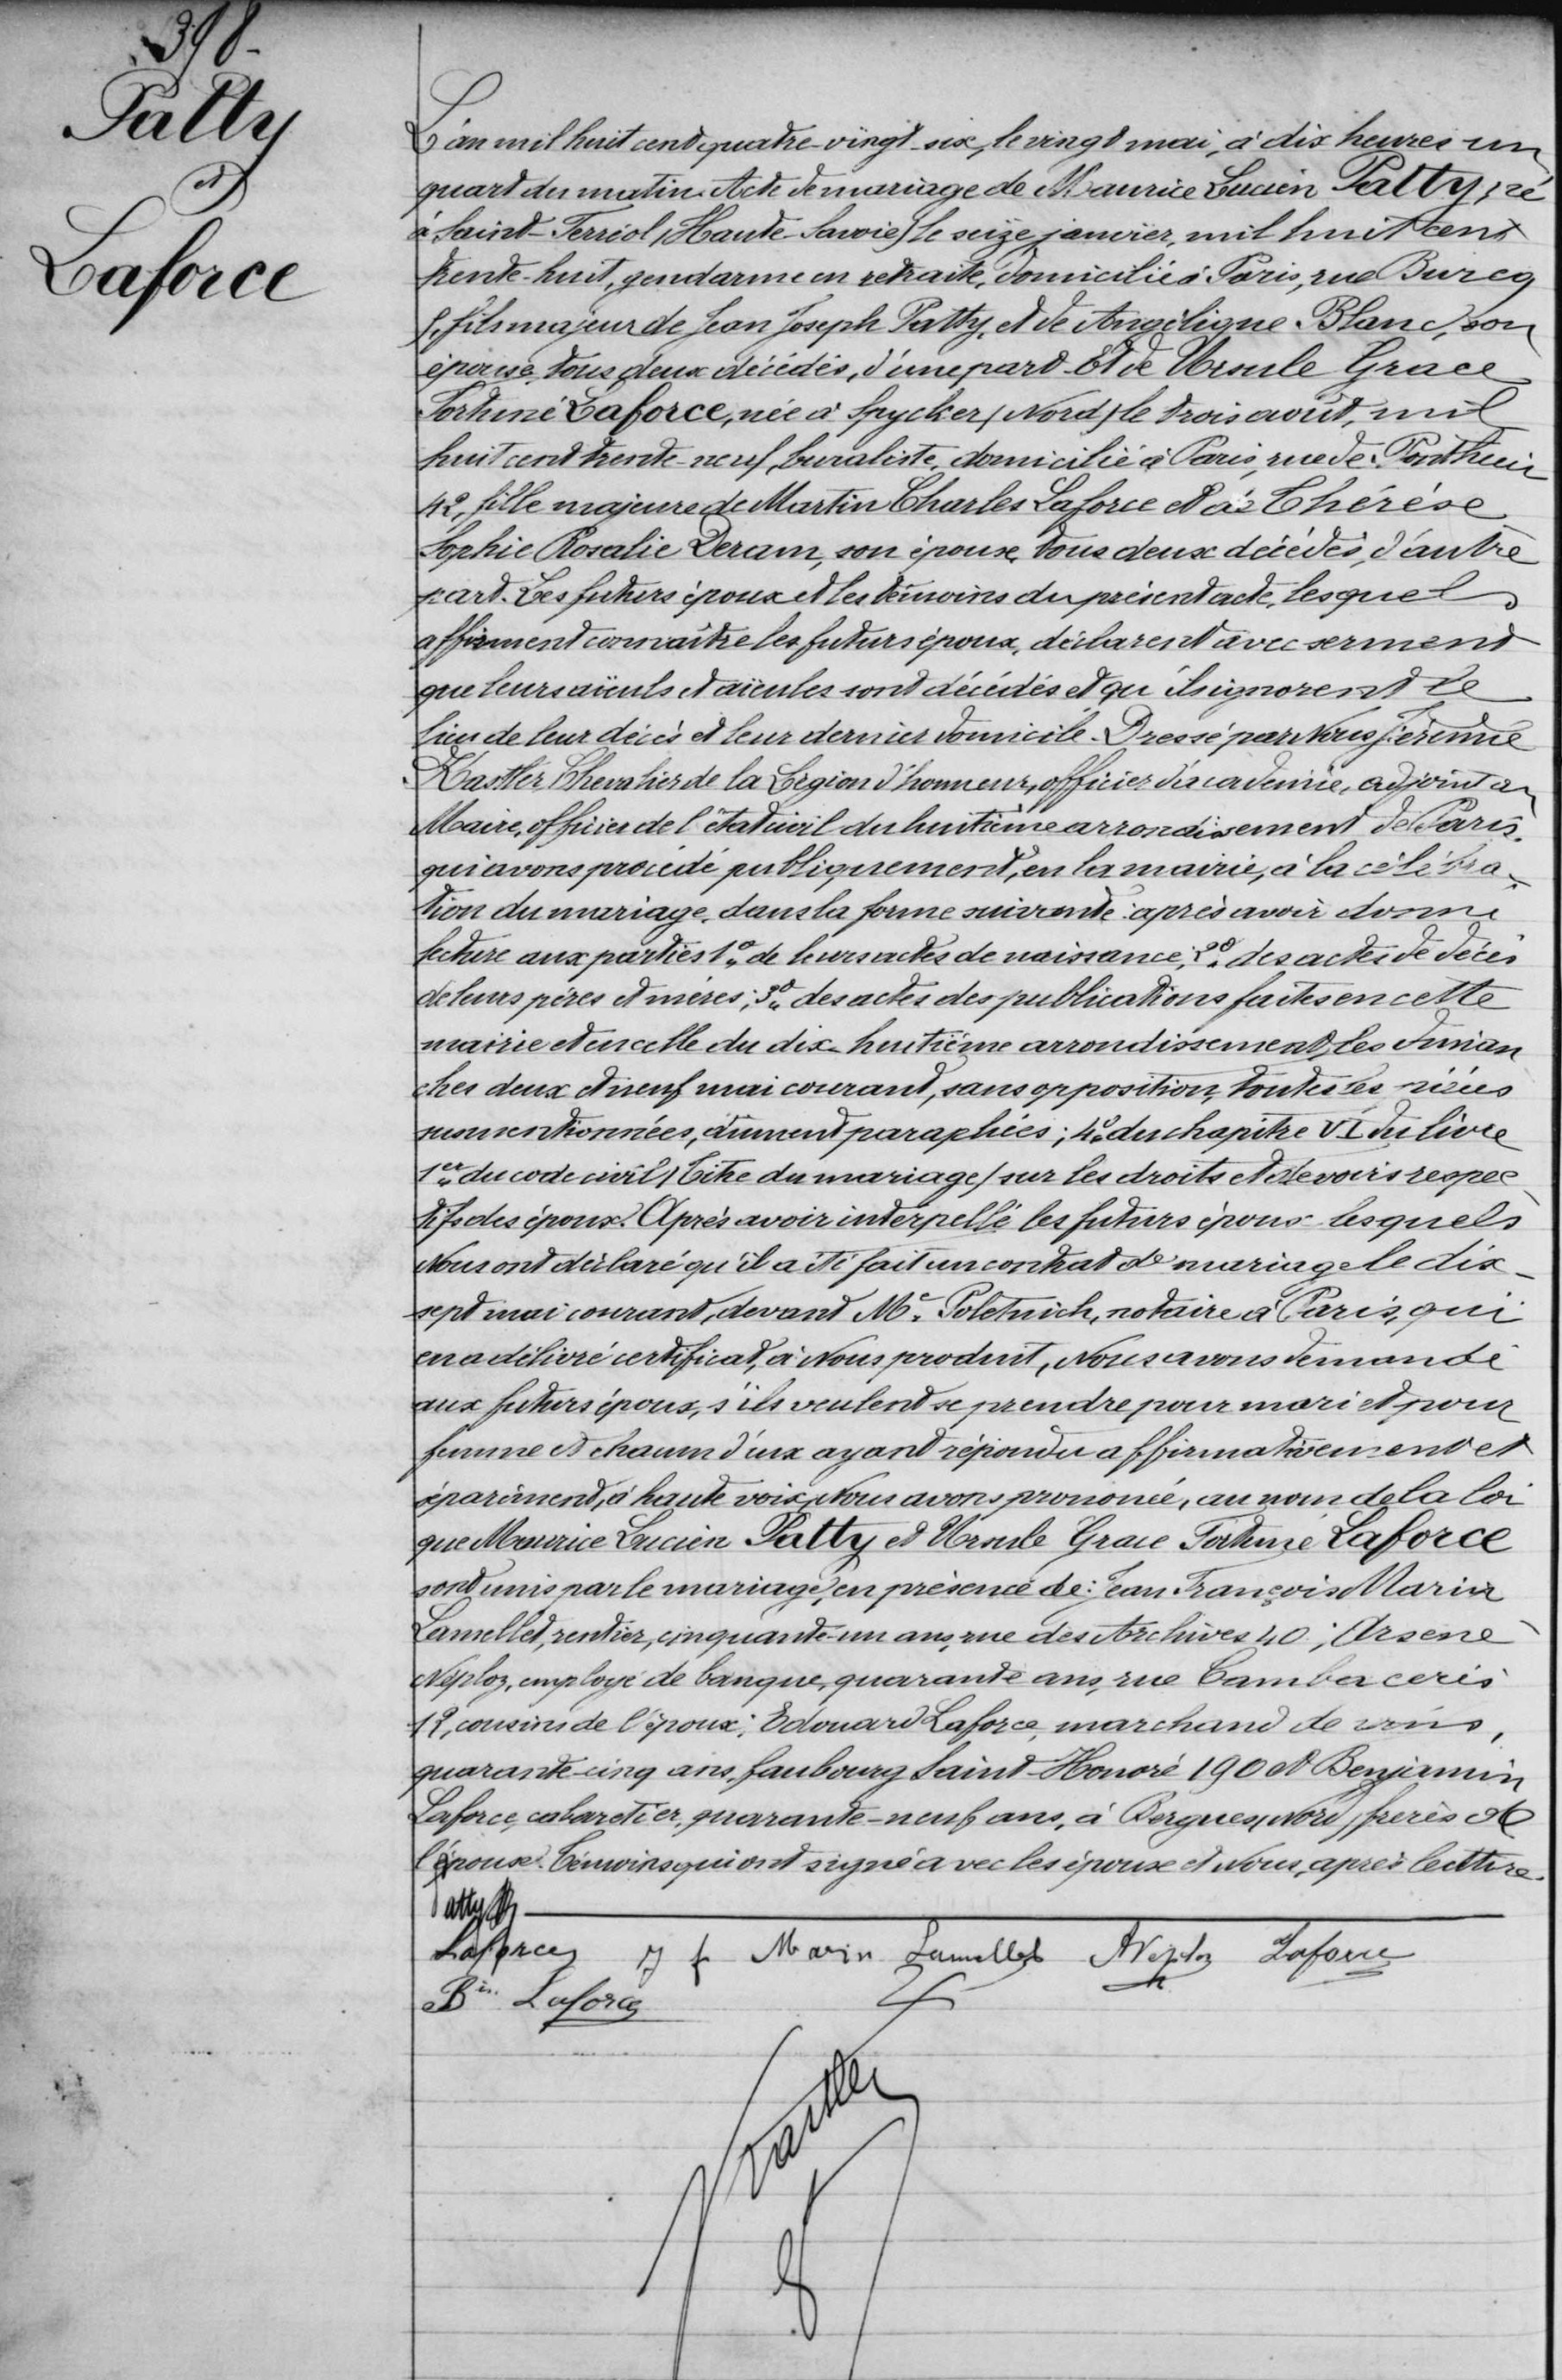 398.
Patty
et
Laforce
L'an mil huit cent quatre-vingt-six, le vingt mai, à dix heures un
quart du matin. Acte de mariage de Maurice Lucien Patty, né
à Saint-Ferréol (Haute-Savoie) le seize janvier, mil huit cent
trente-huit, gendarme en retraite, domicilié à Paris, rue Burcq
fils majeur de Jean Joseph Patty, et de Angélique Blanc, son
épouse, tous deux décédés, d'une part. Et de Ursule Grace
Fortuné Laforce, née à Spycker (Nord) le trois août, mil
huit cent trente-neuf, buraliste, domicilié à Paris, rue de Ponthieu
42, fille majeure de Martin Charles Laforce et de Thérèse
Sophie Rosalie Deram, son épouse, tous deux décédés, d'autre
part. Les futurs époux et les témoins du présent acte, lesquels
affirment connaître les futurs époux, déclarent avec serment
que leurs aïeuls et aïeules sont décédés et qu'ils ignorent le
lieu de leur décès et leur dernier domicile. Dressé par Nous, Jérémie
Kastler, Chevalier de la Légion d'honneur, officier d'académie, adjoint au
Maire, officier de l'état civil du huitième arrondissement de Paris,
qui avons procédé publiquement, en la mairie, à la célébra-
tion du mariage, dans la forme suivante: après avoir donné
lecture aux parties 1º de leurs actes de naissance; 2º des actes de décès
de leurs pères et mères; 3º des actes des publications faites en cette
mairie et en celle du dix-huitième arrondissement, les diman
ches deux et neuf mai courant, sans opposition, toutes les pièces
susmentionnées, dûment paraphées; 4º du chapitre VI du livre
1er du code civil (titre du mariage) sur les droits et devoirs respec-
tifs des époux. Après avoir interpellé les futurs époux lesquels
Nous ont déclaré qu'il a été fait un contrat de mariage le dix-
sept mai courant, devant Me. Poletnich, notaire à Paris, qui
en a délivré certificat, à Nous produit, Nous avons demandé
aux futurs époux, s'ils veulent se prendre pour mari et pour
femme et chacun d'eux ayant répondu affirmativement et
séparément, à haute voix, Nous avons prononcé, au nom de la loi
que Maurice Lucien Patty et Ursule Grace Fortuné Laforce
sont unis par le mariage, en présence de: Jean François Marin
Lamellet, rentier, cinquante-un ans, rue des Archives 40; Arsène
Néploz, employé de banque, quarante ans, rue Cambacerès
12, cousins de l'époux; Edouard Laforce, marchand de vins,
quarante-cinq ans, faubourg Saint-Honoré 190 et Benjamin
Laforce, cabaretier, quarante-neuf ans, à Bergues (Nord) frères de
l'épouse. Témoins qui ont signé avec les époux et Nous, après lecture.
Patty
Laforce J f Marin Lamellet ANéploz Laforce
Bin. Laforce
Kastler